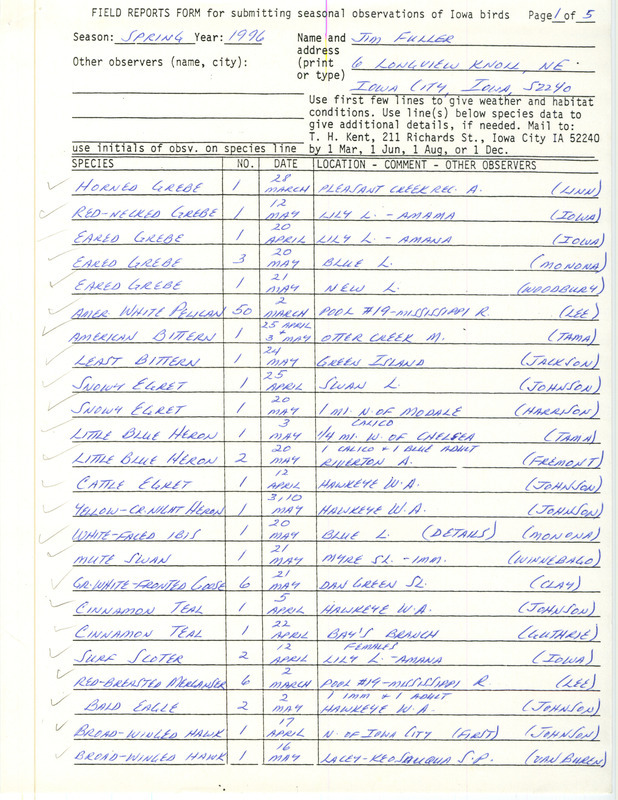 FIELD REPORTS FORM for submitting seasonal observations of Iowa birds Page 1 of 5
Season: SPRING Year: 1996 Name and JIM FULLER
address
Other observers (name, city): (print 6 LONGVIEW KNOLL, NE.
or type) IOWA CITY, IOWA, 52240
Use first few lines to give weather and habitat
conditions. Use line(s) below species data to
give additional details, if needed. Mail to:
T. H. Kent, 211 Richards St., Iowa City IA 52240
use initials of obsv. on species line by 1 Mar, 1 Jun, 1 Aug, or 1 Dec.
SPECIES NO. DATE LOCATION - COMMENT - OTHER OBSERVERS
HORNED GREBE 1 28 MARCH PLEASANT CREEK REC. A. (LINN)
RED-NECKED GREBE 1 12 MAY LILY L. - AMAMA (IOWA)
EARED GREBE 1 20 APRIL LILY L. - AMANA (IOWA)
EARED GREBE 3 20 MAY BLUE L. (MONONA)
EARED GREBE 1 21 MAY NEW L. (WOODBURY)
AMER WHITE PELICAN 50 2 MARCH POOL #19-MISSISSIPPI R. (LEE)
AMERICAN BITTERN 1 25 APRIL + 3 MAY OTTER CREEK M. (TAMA)
LEAST BITTERN 1 24 MAY GREEN ISLAND (JACKSON)
SNOWY EGRET 1 25 APRIL SWAN L. (JOHNSON)
SNOWY EGRET 1 20 MAY 1 MI. N. OF MODALE (HARRISON)
LITTLE BLUE HERON 1 3 MAY CALICO 1/4 MI. W. OF CHELSEA (TAMA)
LITTLE BLUE HERON 2 20 MAY 1 CALICO + 1 BLUE ADULT RIVERTON A. (FREMONT)
CATTLE EGRET 1 12 APRIL HAWKEYE W.A. (JOHNSON)
YELLOW-CR. NIGHT HERON 1 3,10 MAY HAWKEYE W.A. (JOHNSON)
WHITE-FACED IBIS 1 20 MAY BLUE L. (DETAILS) (MONONA)
MUTE SWAN 1 21 MAY MYRE SL. - IMM. (WINNEBAGO)
GR-WHITE-FRONTED GOOSE 6 21 MAY DAN GREEN SL. (CLAY)
CINNAMON TEAL 1 5 APRIL HAWKEYE W.A. (JOHNSON)
CINNAMON TEAL 1 22 APRIL BAY'S BRANCH (GUTHRIE)
SURF SCOTER 2 12 APRIL FEMALES LILY L. - AMANA (IOWA)
RED-BREASTED MERGANSER 6 2 MARCH POOL #19-MISSISSIPPI R. (LEE)
BALD EAGLE 2 2 MAY 1 IMM + 1 ADULT HAWKEYE W.A. (JOHNSON)
BROAD-WINGED HAWK 1 17 APRIL N. OF IOWA CITY (FIRST) (JOHNSON)
BROAD-WINGED HAWK 1 16 MAY LACEY-KEOSAUQUA S.P. (VAN BUREN)